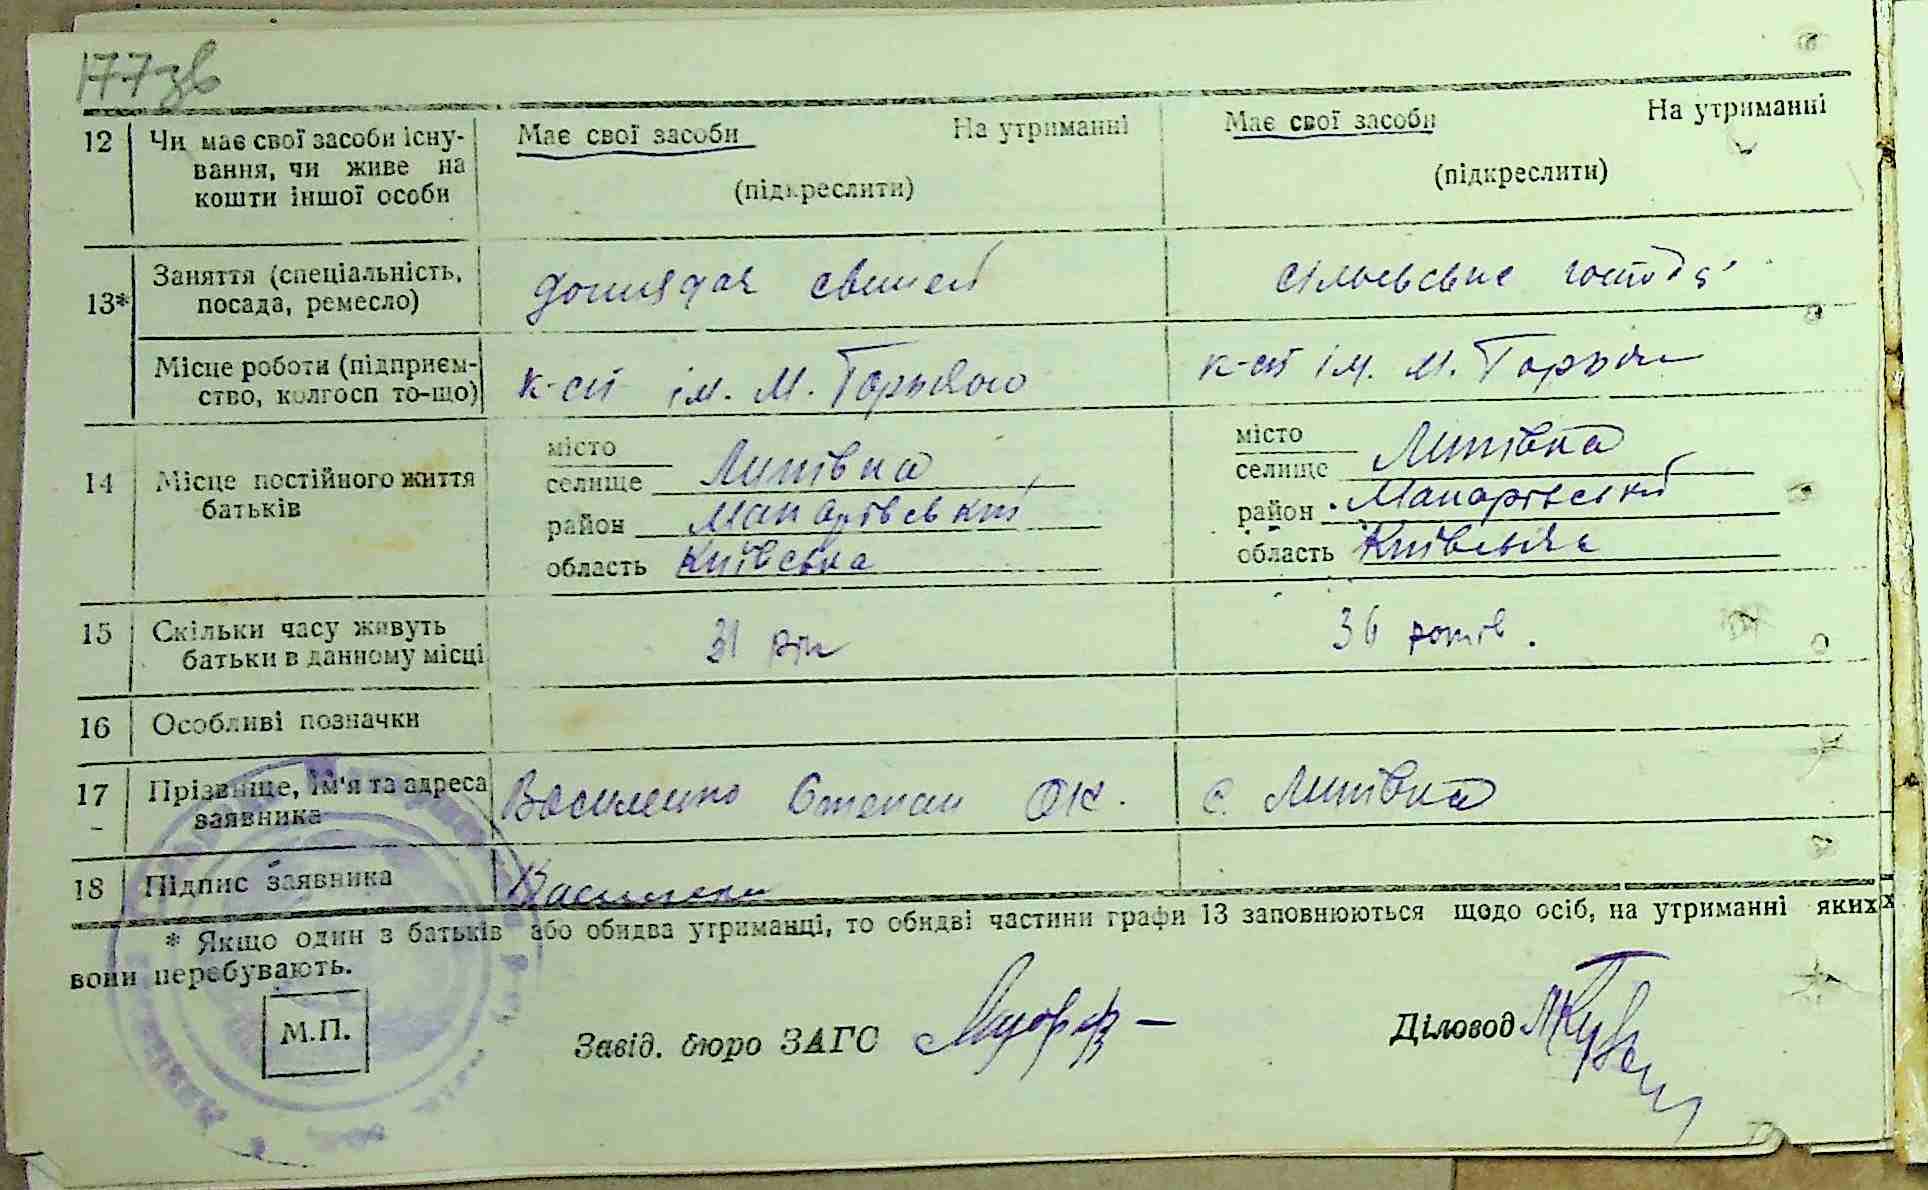 177зв
12 Чи має свої засоби існу- Має свої засоби На утриманні Має свої засоби На утриманні
вання, чи живе на (підкреслити) (підкреслити)
кошти іншої особи
Заняття (спеціальність, доглядач свиней сільське
13* посада, ремесло)
Місце роботи (підприєм- к-сп ім. М. Горького к-сп ім. М.
ство, колгосп то-що)
місто місто
14 Місце постійного життя селище Липівка селище Липівка
батьків район Макарівський район Макарівський
область Київська область Київська
15 Скільки часу живуть 31 рік 36 років.
батьки в данному місці
16 Особливі позначки
17 Прізвище, ім'я та адреса Василенко Степан ОК. с. Липівка
заявника
18 Підпис заявника Василенко
* Якщо один з батьків або обидва утриманці, то обидві частини графи 13 заповнюються щодо осіб, на утриманні яких
вони перебувають.
М.П.
Завід. бюро ЗАГС Діловод